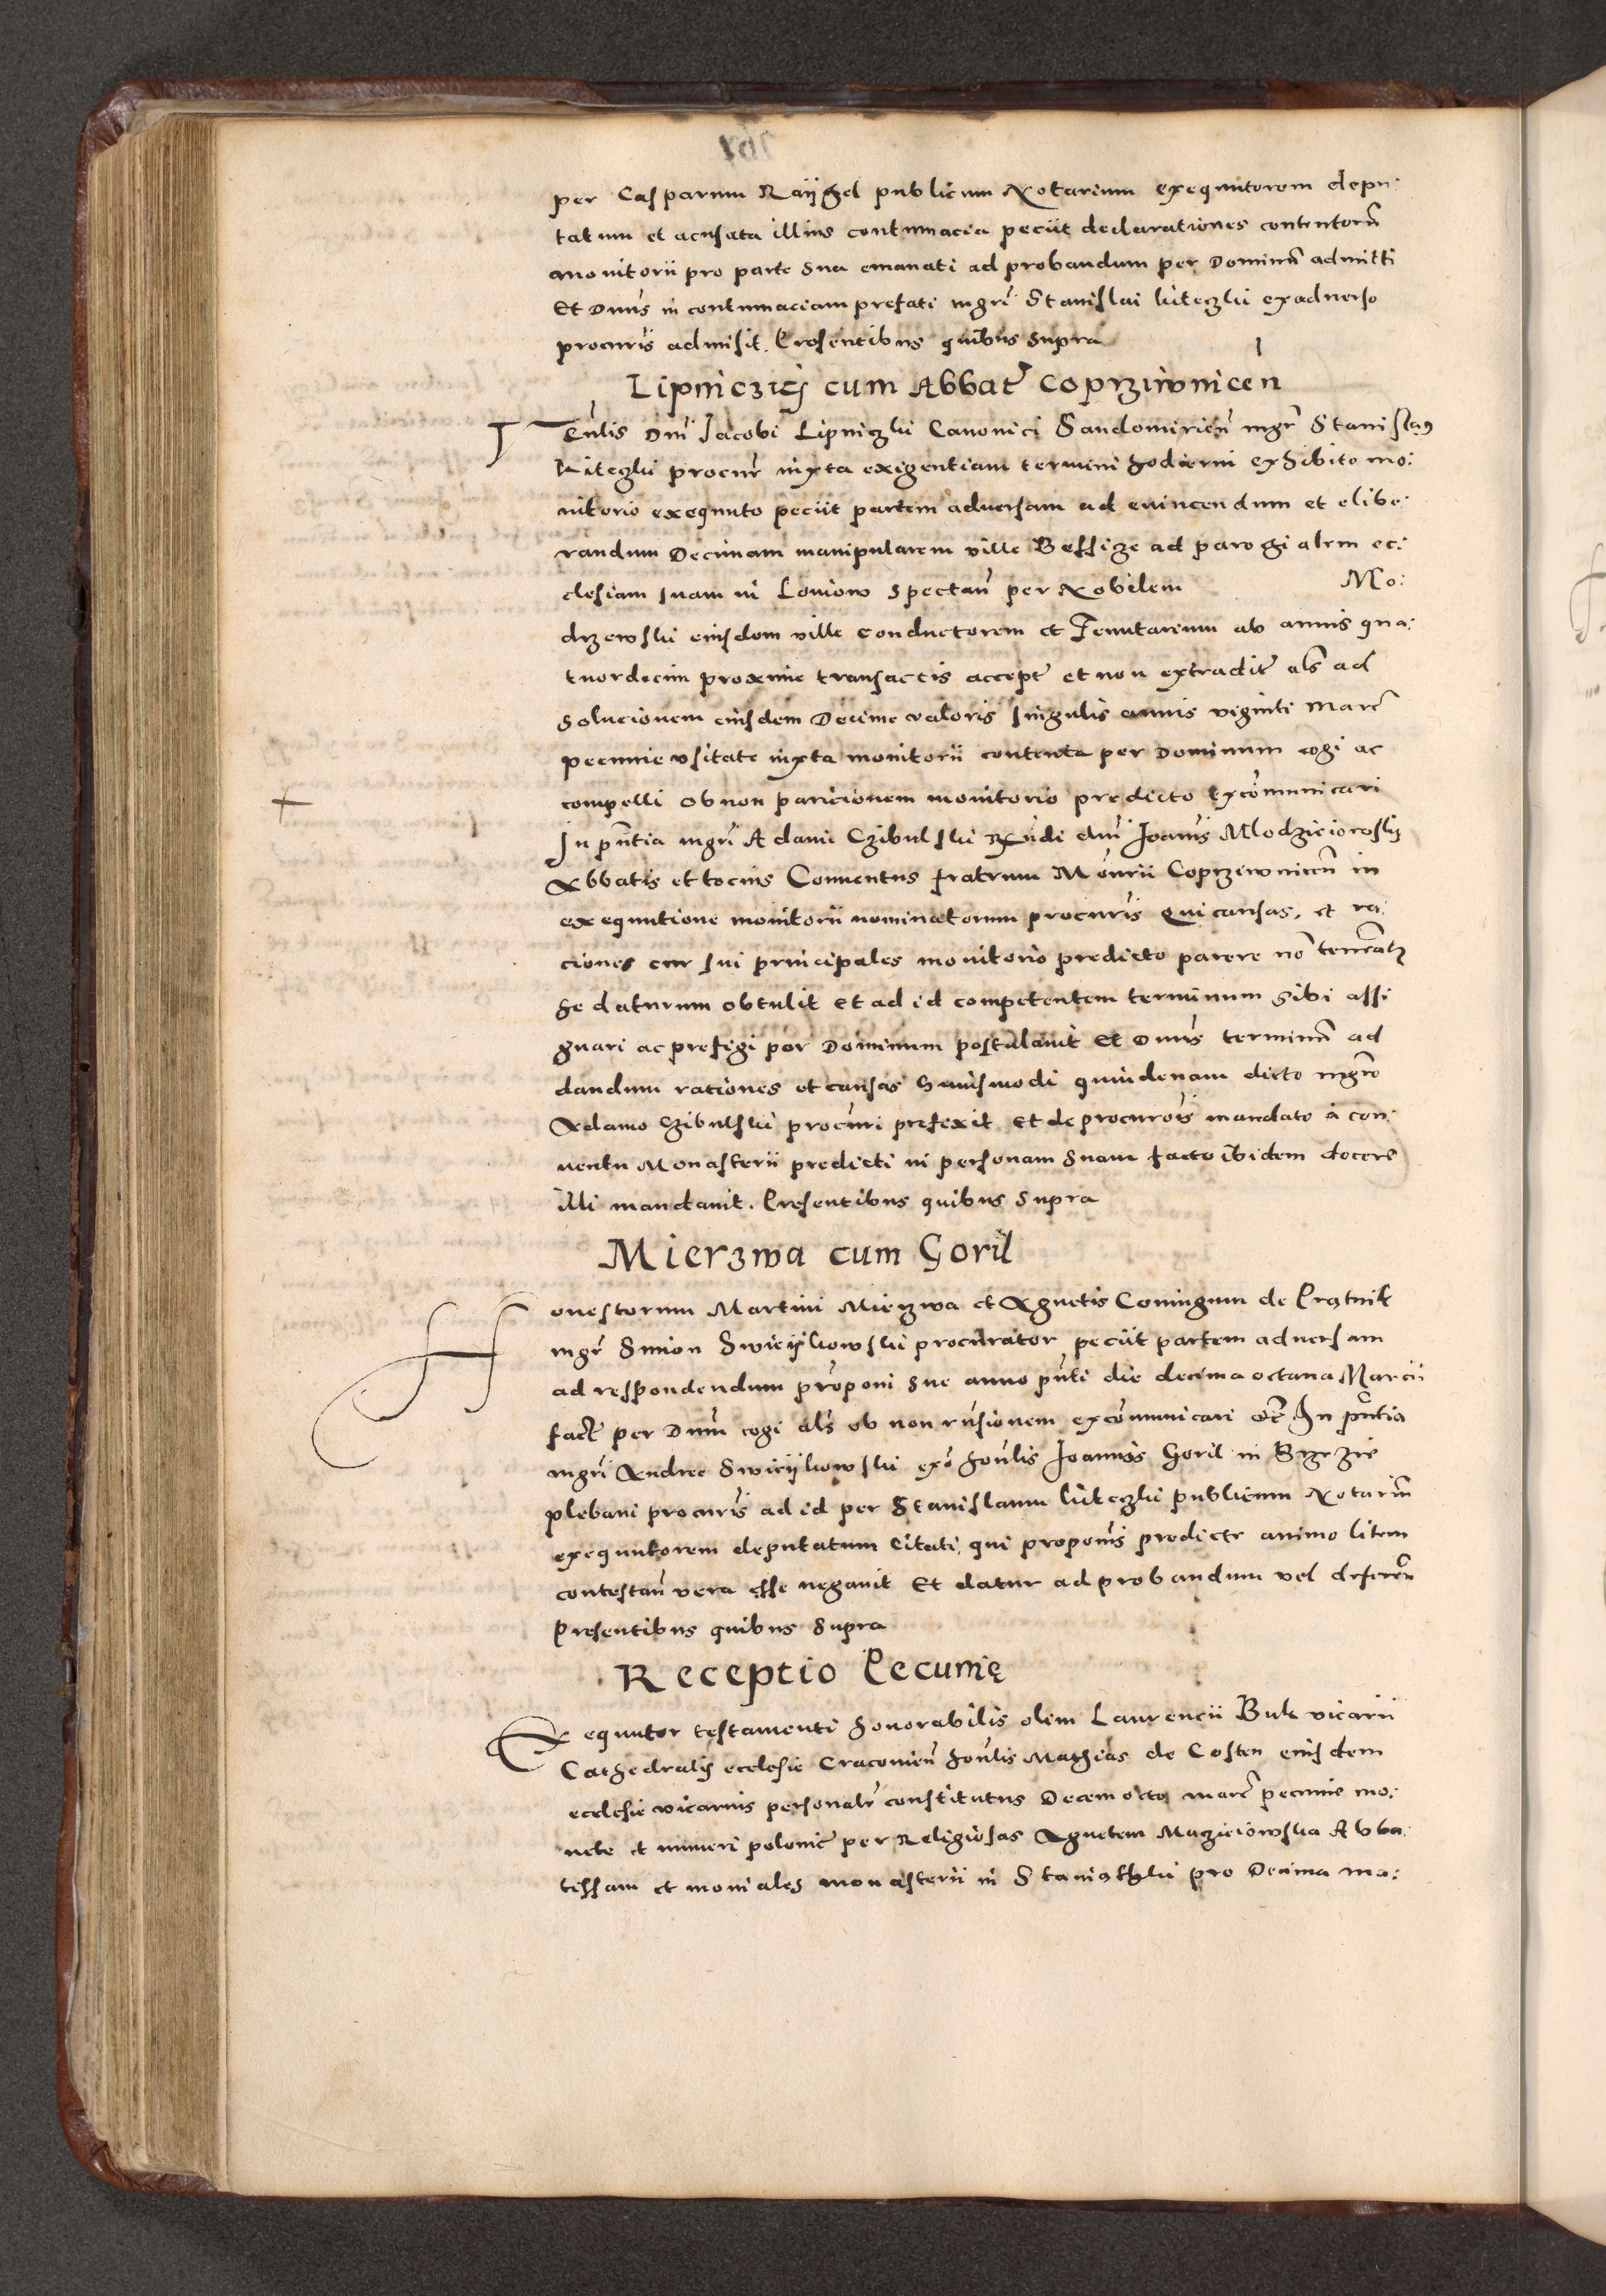 per Casparum Raÿgel publicum Notarium exequutorem depu:
tatum et acusata illius contumacia peciit declarationes contentorũ
monitorii pro parte sua emanati ad probandum per Dominũ admitti
Et Dnus in contumaciam prefati mgrĩ Stanislai kiteczki exadverso
procuris admisit. Presentibus quibus supra
Lipniczkÿ cum Abbate Coprziwnicen
Venlis Dni Jacobi Lipniczki Canonici Sandomirieñ mgr Stanislaus
kiteczki procur iuxta exigentiam termini hodierni exhibito mo:
nitorio exequuto peciit partem adversam ad evincendum et elibe
randum Decimam manipularem ville Bessize ad parochialem ec:
clesiam suam in Loniow spectañ per Nobilem Mo:
drzewski eiusdem ville conductorem et Tenutarium ab annis qua:
tuordecim proxime transactis accept et non extradit als ad
solucionem eiusdem Decime valoris singulis annis viginti marc
pecunie usitate iuxta monitorii contenta per Dominum cogi ac
compelli ob non paricionem monitorio predicto excõmunicari
In pñtia mgri Adami Czibulski Rndi dni Joannis Mlodzieiowski
Abbatis et tocius Conventus fratrum Monrii Coprziwniceñ in
exequutione monitorii nominatorum procuris Qui causas, et ra
ciones cur sui principales monitorio predicto parere nõ teneatur
se daturum obtulit et ad id competentem terminum sibi assi
gnari ac prefigi per Dominum postulavit Et Dnus terminũ ad
dandum rationes et causas huiusmodi quindenam dicto mgro
Adamo Czibulski procuri prefexit Et de procurois mandato a con:
ventu Monasterii predicti in personam suam facto ibidem docere
illi mandavit. Presentibus quibus supra
Mierzwa cum Goril
Honestorum Martini Mierzwa et Agnetis Coniugum de Prątnik
mgr Simon Swieÿkowski procurator peciit partem adversam
ad respondendum proponi sue anno pñti die decima octava Marcii
fact per Dnum cogi als ob non rnsionem excõmunicari etc In pñtia
mgri Andree Swieÿkowski ex honlis Joannis Goril in Brzezie
plebani procuris ad id per Stanislaum kiteczki publicum Notariũ
exequutorem deputatum Citati, qui proponis predicte animo litem
contestañ vera esse negavit Et datur ad probandum vel defereñ
Presentibus quibus supra
Receptio Pecunię
Exequutor testamenti honorabilis olim Laurencii Buk vicarii
Cathedralis ecclesie Cracovieñ honlis Mathias de Costen eiusdem
ecclesie vicarius personalr constitutus Decem octo marc pecunie mo:
nete et numeri polonic per Religiosas Agnetem Maczieiowska Abba
tissam et moniales monasterii in Staniąthki pro Decima ma: